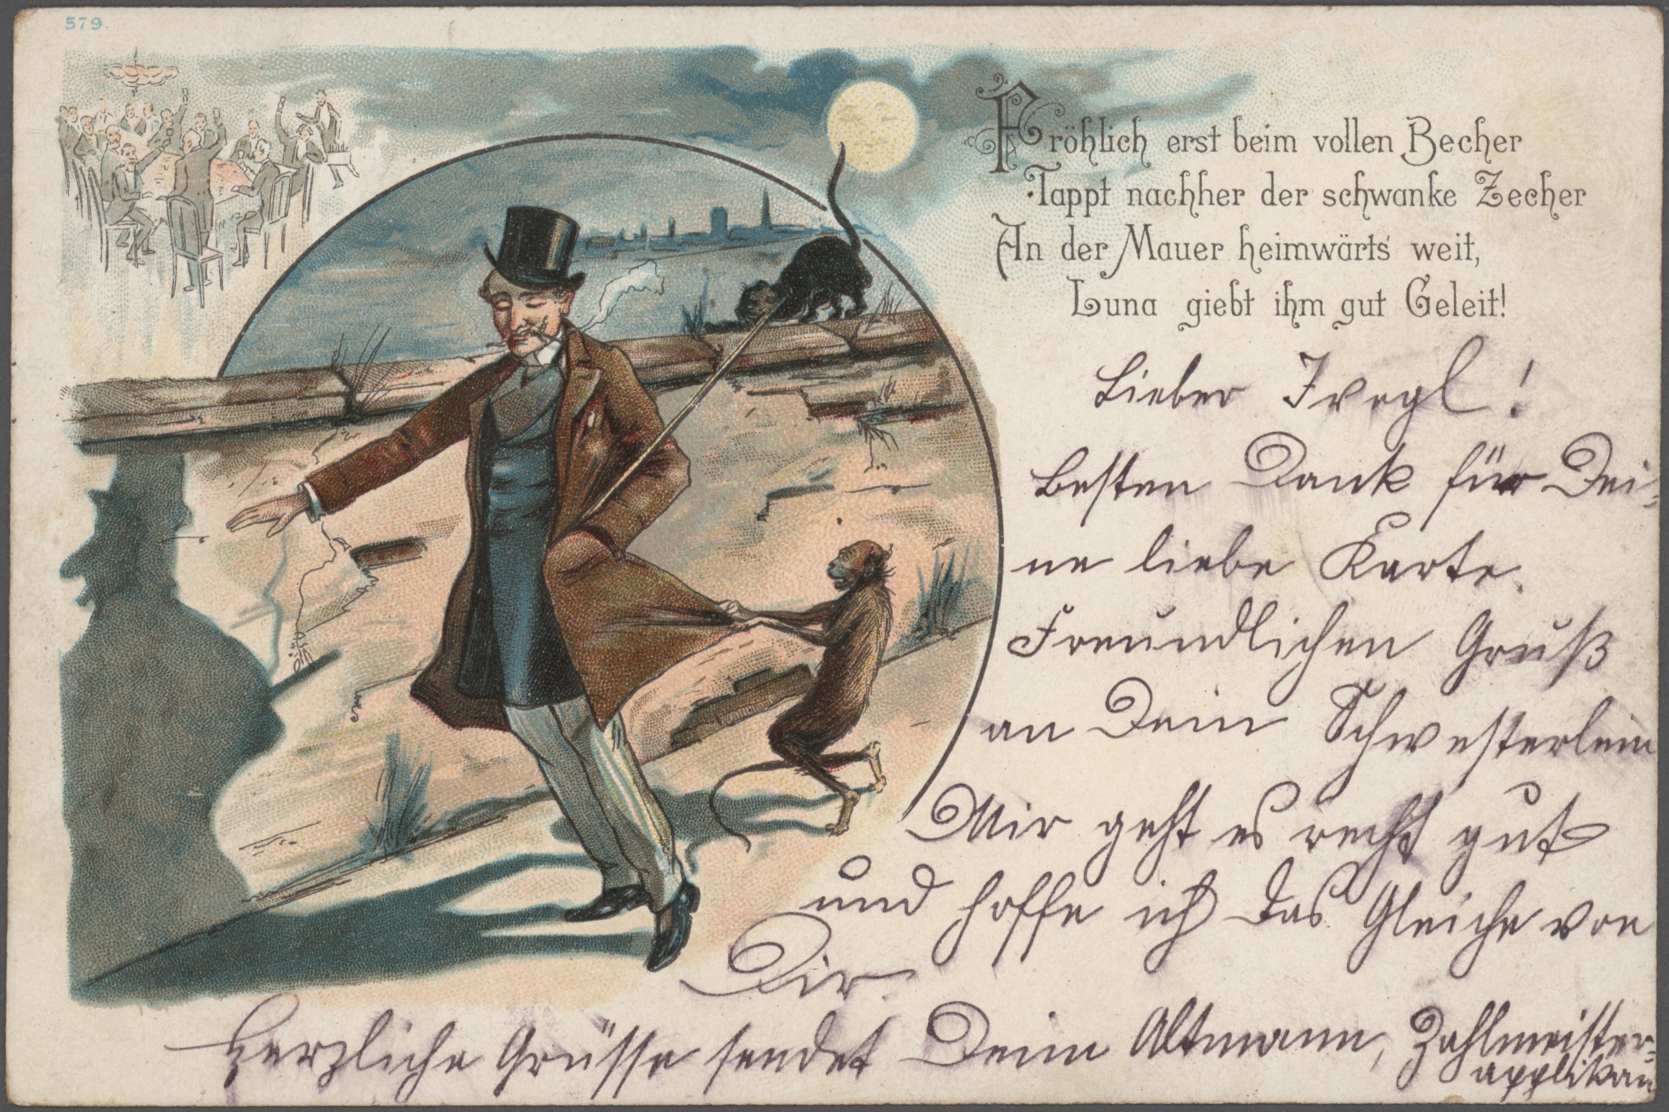 579.
Fröhlich erst beim vollen Becher
Tappt nachher der schwanke Zecher
An der Mauer heimwärts weit,
Luna giebt ihm gut Geleit!
Lieber !
besten Dank für Dei-
ne liebe Karte.
Freundlichen Gruß
an Dein Schwesterlein
Mir geht es recht gut
und hoffe ich das Gleiche von
Dir.
Herzliche Grüsse sendet Dein Altmann, Zahlmeister-